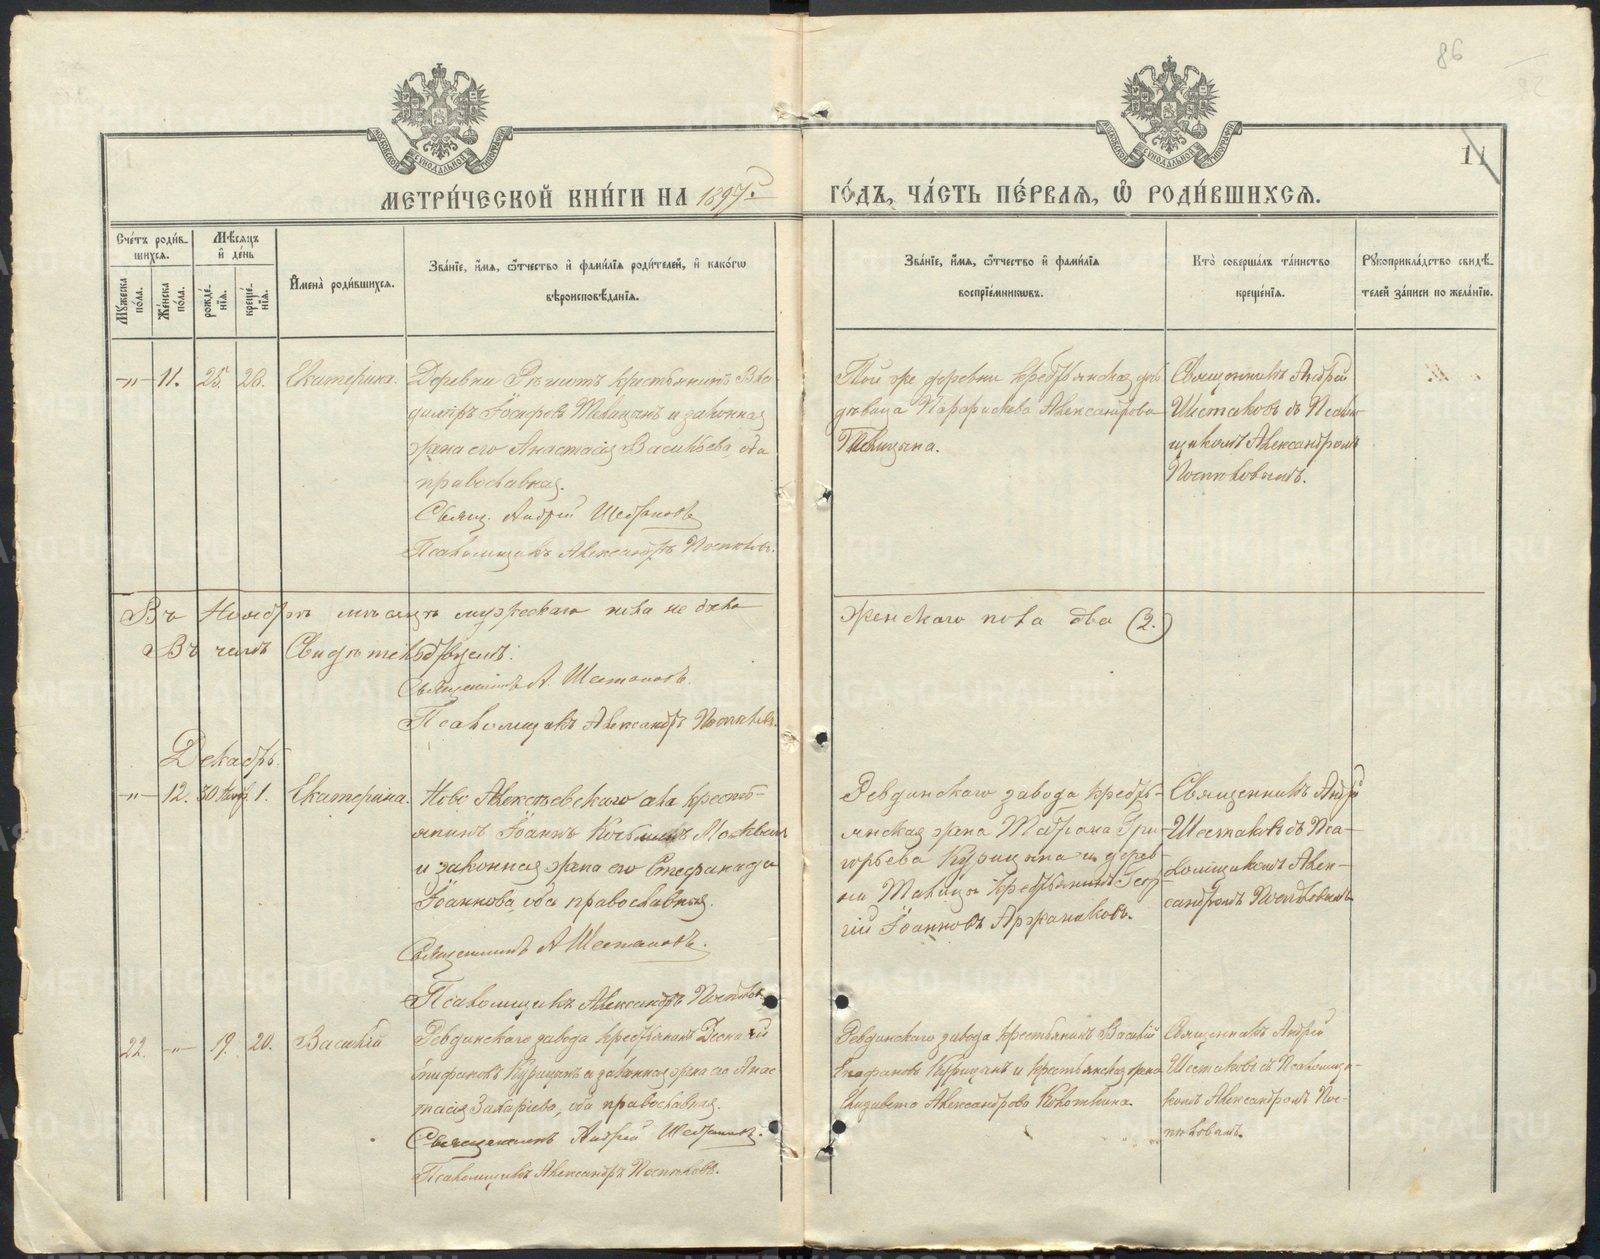 86
11
МЕТРИ́ЧЕСКОЙ КНИ́ГИ НА 1897 г.
ГО́ДЪ, ЧА́СТЬ ПЕ́РВАЯ, Ѿ РОДИ́ВШИХСЯ.
Сче́тъ роди́в-
шихся.
Му́жеска
по́ла.
Же́нска
по́ла.
Мѣ́сяцъ
и҆ де́нь
рожде́-
нїя.
креще́-
нїя.
И҆мена̀ роди́вшихся.
Зва́нїе, и҆́мя, ѻ҆́тчество и҆ фами́лїя роди́телей, и҆ како́гѡ
вѣроисповѣ́данїя.
Зва́нїе, и҆́мя, ѻ҆́тчество и҆ фами́лїя
воспрїе́мникѡвъ.
Кто̀ соверша́лъ та́инство
креще́нїя.
Рꙋкоприкла́дство свидѣ́-
телей за́писи по жела́нїю.
-"- 11. 25. 26. Екатерина.
Деревни крестьянинъ Вла-
димiръ и законная
жена его Анастасiя Васильева, оба
православные.
Свящ. Андрей Шестаковъ
Псаломщикъ Александръ
Той же деревни крестьянская дѣ-
дѣвица Параскева Александрова
Священникъ Андрей
Шестаковъ съ Псалом-
щикомъ Александромъ
Въ Ноябрѣ мѣсяцѣ мужескаго пола не было
женскаго пола два (2.)
Въ чемъ Свидѣтельствуемъ:
Священникъ А. Шестаковъ.
Псаломщикъ Александръ
Декабрь.
-"- 12. 30 Нояб. 1. Екатерина.
Ново Алексѣевскаго села кресть-
янинъ Iоаннъ
и законная жена его Стефанида
Iоаннова, оба православные.
Священникъ А Шестаковъ.
Псаломщикъ Александръ
Ревдинскаго завода кресть-
янская жена Матрона Гри-
горьева Курицына и дерев-
ни крестьянинъ Геор-
гiй Iоанновъ Аржаниковъ.
Священникъ Андрей
Шестаковъ съ Пса-
ломщикомъ Алек-
сандромъ
22. -"- 19. 20. Василiй
Ревдинскаго завода крестьянинъ
Епифановъ Курицынъ и законная жена его Анас-
тасiя Захарiева, оба православные.
Священникъ Андрей Шестаковъ.
Псаломщикъ Александръ
Ревдинскаго завода крестьянинъ Василiй
Епифановъ Курицынъ и крестьянская жена
Елизавета Александрова
Священникъ Андрей
Шестаковъ съ Псаломщи-
комъ Александромъ Пос-
METRIKI.GASO-URAL.RU